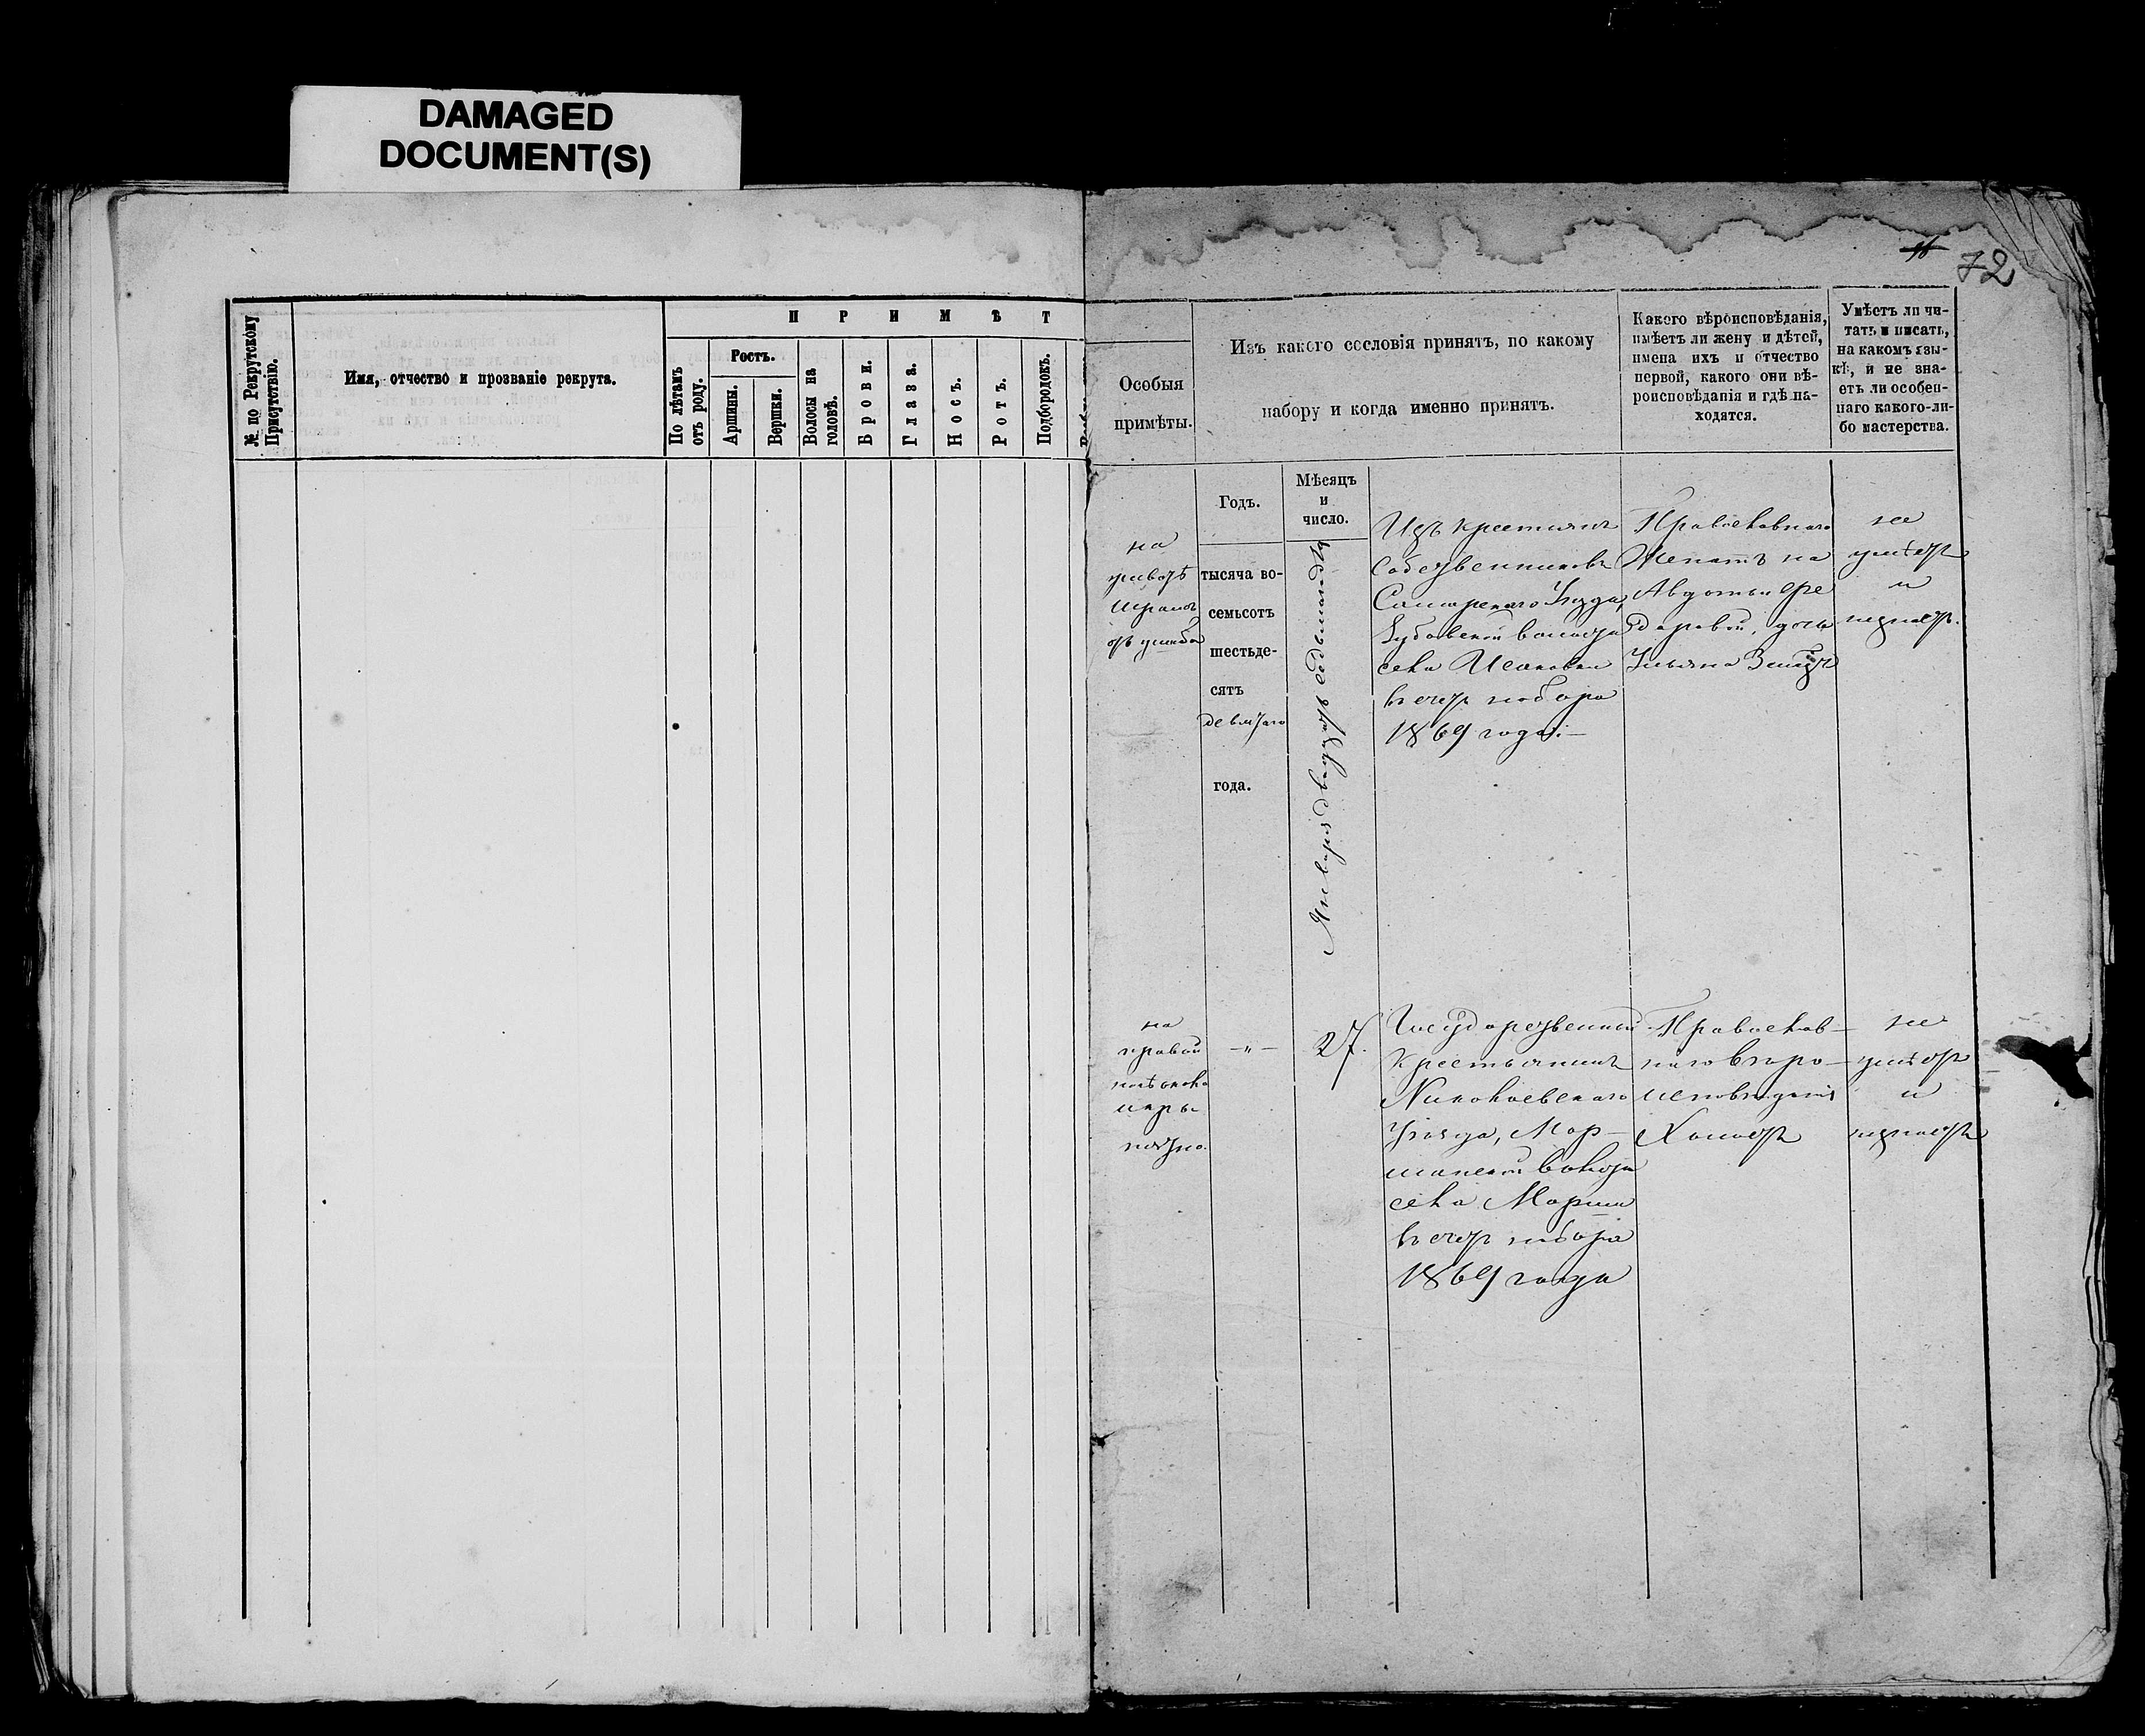 DAMAGED
DOCUMENT(S)
72
№ по Рекрутскому
Присутствію.
Имя, отчество и прозваніе рекрута.
П Р И М Ѣ Т
По лѣтамъ
отъ роду.
Ростъ.
Аршины.
Вершки.
Волосы на
головѣ.
Брови.
Глаза.
Носъ.
Ротъ.
Подбородокъ.
Особыя
примѣты.
Изъ какого сословія принятъ, по какому
набору и когда именно принятъ.
Какого вѣроисповѣданія,
имѣетъ ли жену и дѣтей,
имена ихъ и отчество
первой, какого они вѣ-
роисповѣданія и гдѣ на-
ходятся.
Умѣетъ ли чи-
тать и писать,
на какомъ язы-
кѣ, и не зна-
етъ ли особен-
наго какого-ли-
бо мастерства.
Годъ.
Мѣсяцъ
и
число.
на
животѣ
шрамъ
отъ ушиба
тысяча во-
семьсотъ
шестьде-
сятъ
девятаго
года.
Января двадцать седьмаго
Изъ крестьянъ
Собственниковъ
Самарскаго Уѣзда,
волости
села
въ счетъ набора
1869 года.—
Православнаго
Женатъ на
Авдотьи Ѳе
доровой, дочь
Ульяна
не
умѣетъ
и
незнаетъ.
на
правой
—„—
27.
Государственный
Крестьянинъ
Николаевскаго
Уѣзда, Мор—
шанской волости
села Морши
въ счетъ набора
1869 года
Православ—
наго вѣро—
исповѣданія
Холостъ
не
умѣетъ
и
незнаетъ